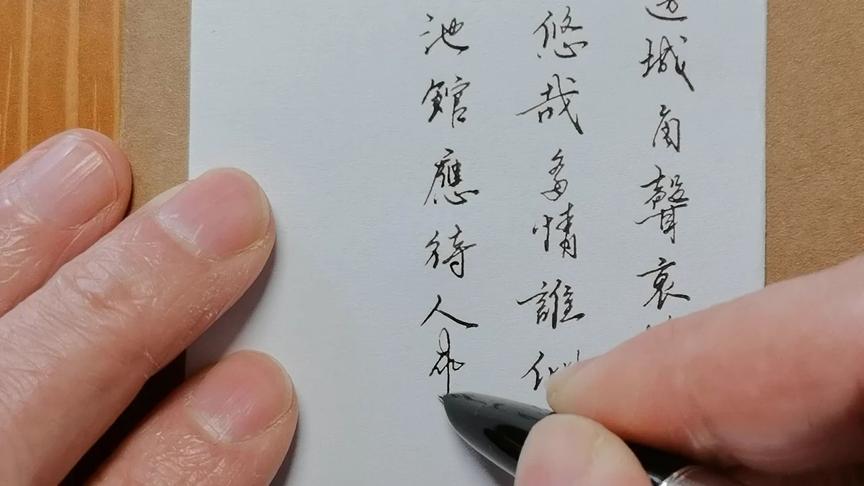 城角聲哀
悠哉多情誰
池館應待人